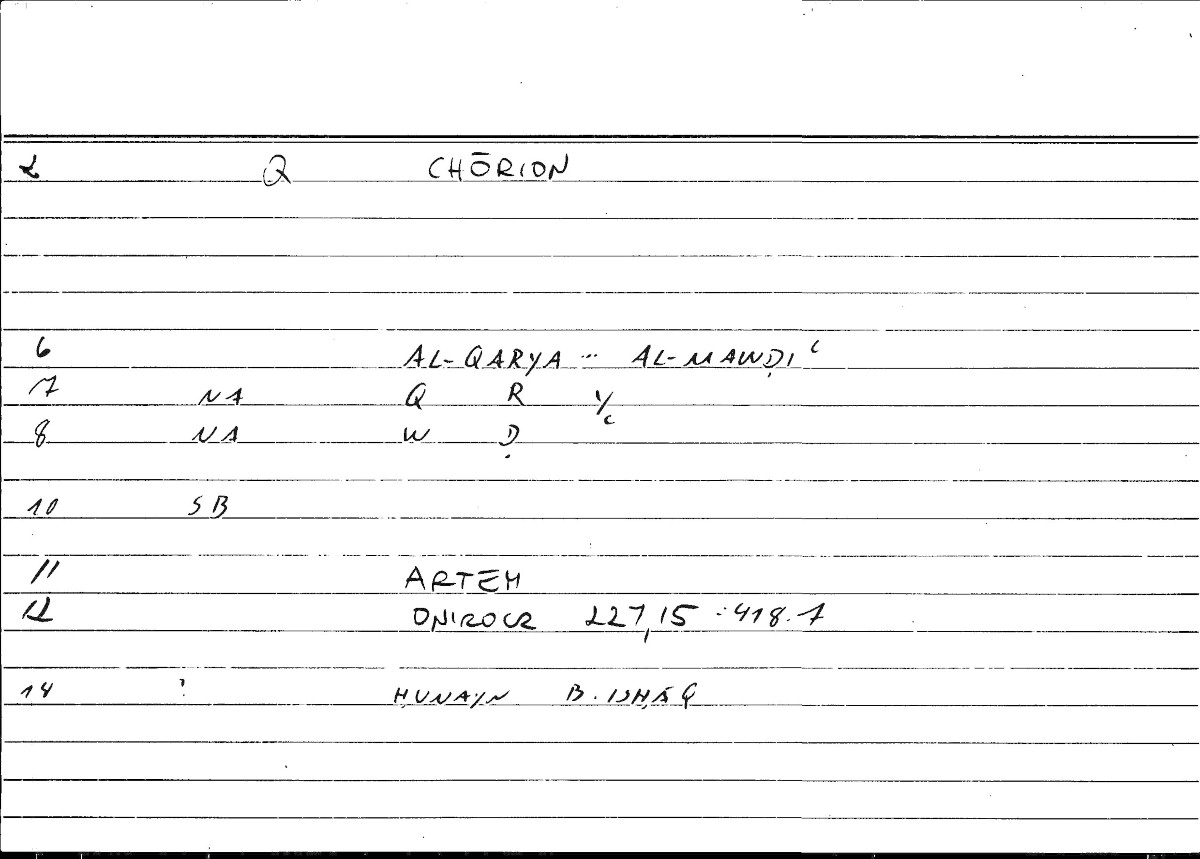 2 Q CHŌRION
6 AL-QARYA ... AL-MAWḌIʿ
7 NA Q R Y/c
8 NA W Ḍ
10 SB
11 ARTEM
12 ONIROCR 227,15 : 418.7
14 ? ḤUNAYN B. ISḤĀQ